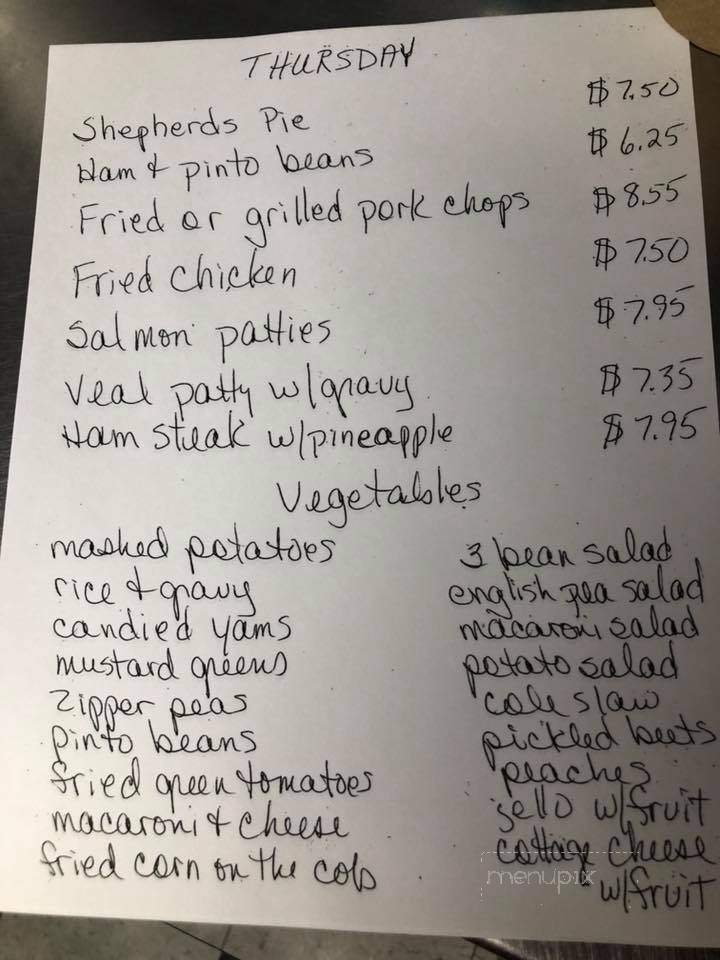 THURSDAY
Shepherds Pie $7.50
Ham & pinto beans $6.25
Fried or grilled pork chops $8.55
Fried Chicken $7.50
Salmon patties $7.95
Veal patty w/gravy $7.35
Ham steak w/pineapple $7.95
Vegetables
mashed potatoes
rice & gravy
candied yams
mustard greens
Zipper peas
pinto beans
fried green tomatoes
macaroni & cheese
fried corn on the cob
3 bean salad
english pea salad
macaroni salad
potato salad
cole slaw
pickled beets
peaches
jello w/fruit
cottage cheese
w/fruit
menupix